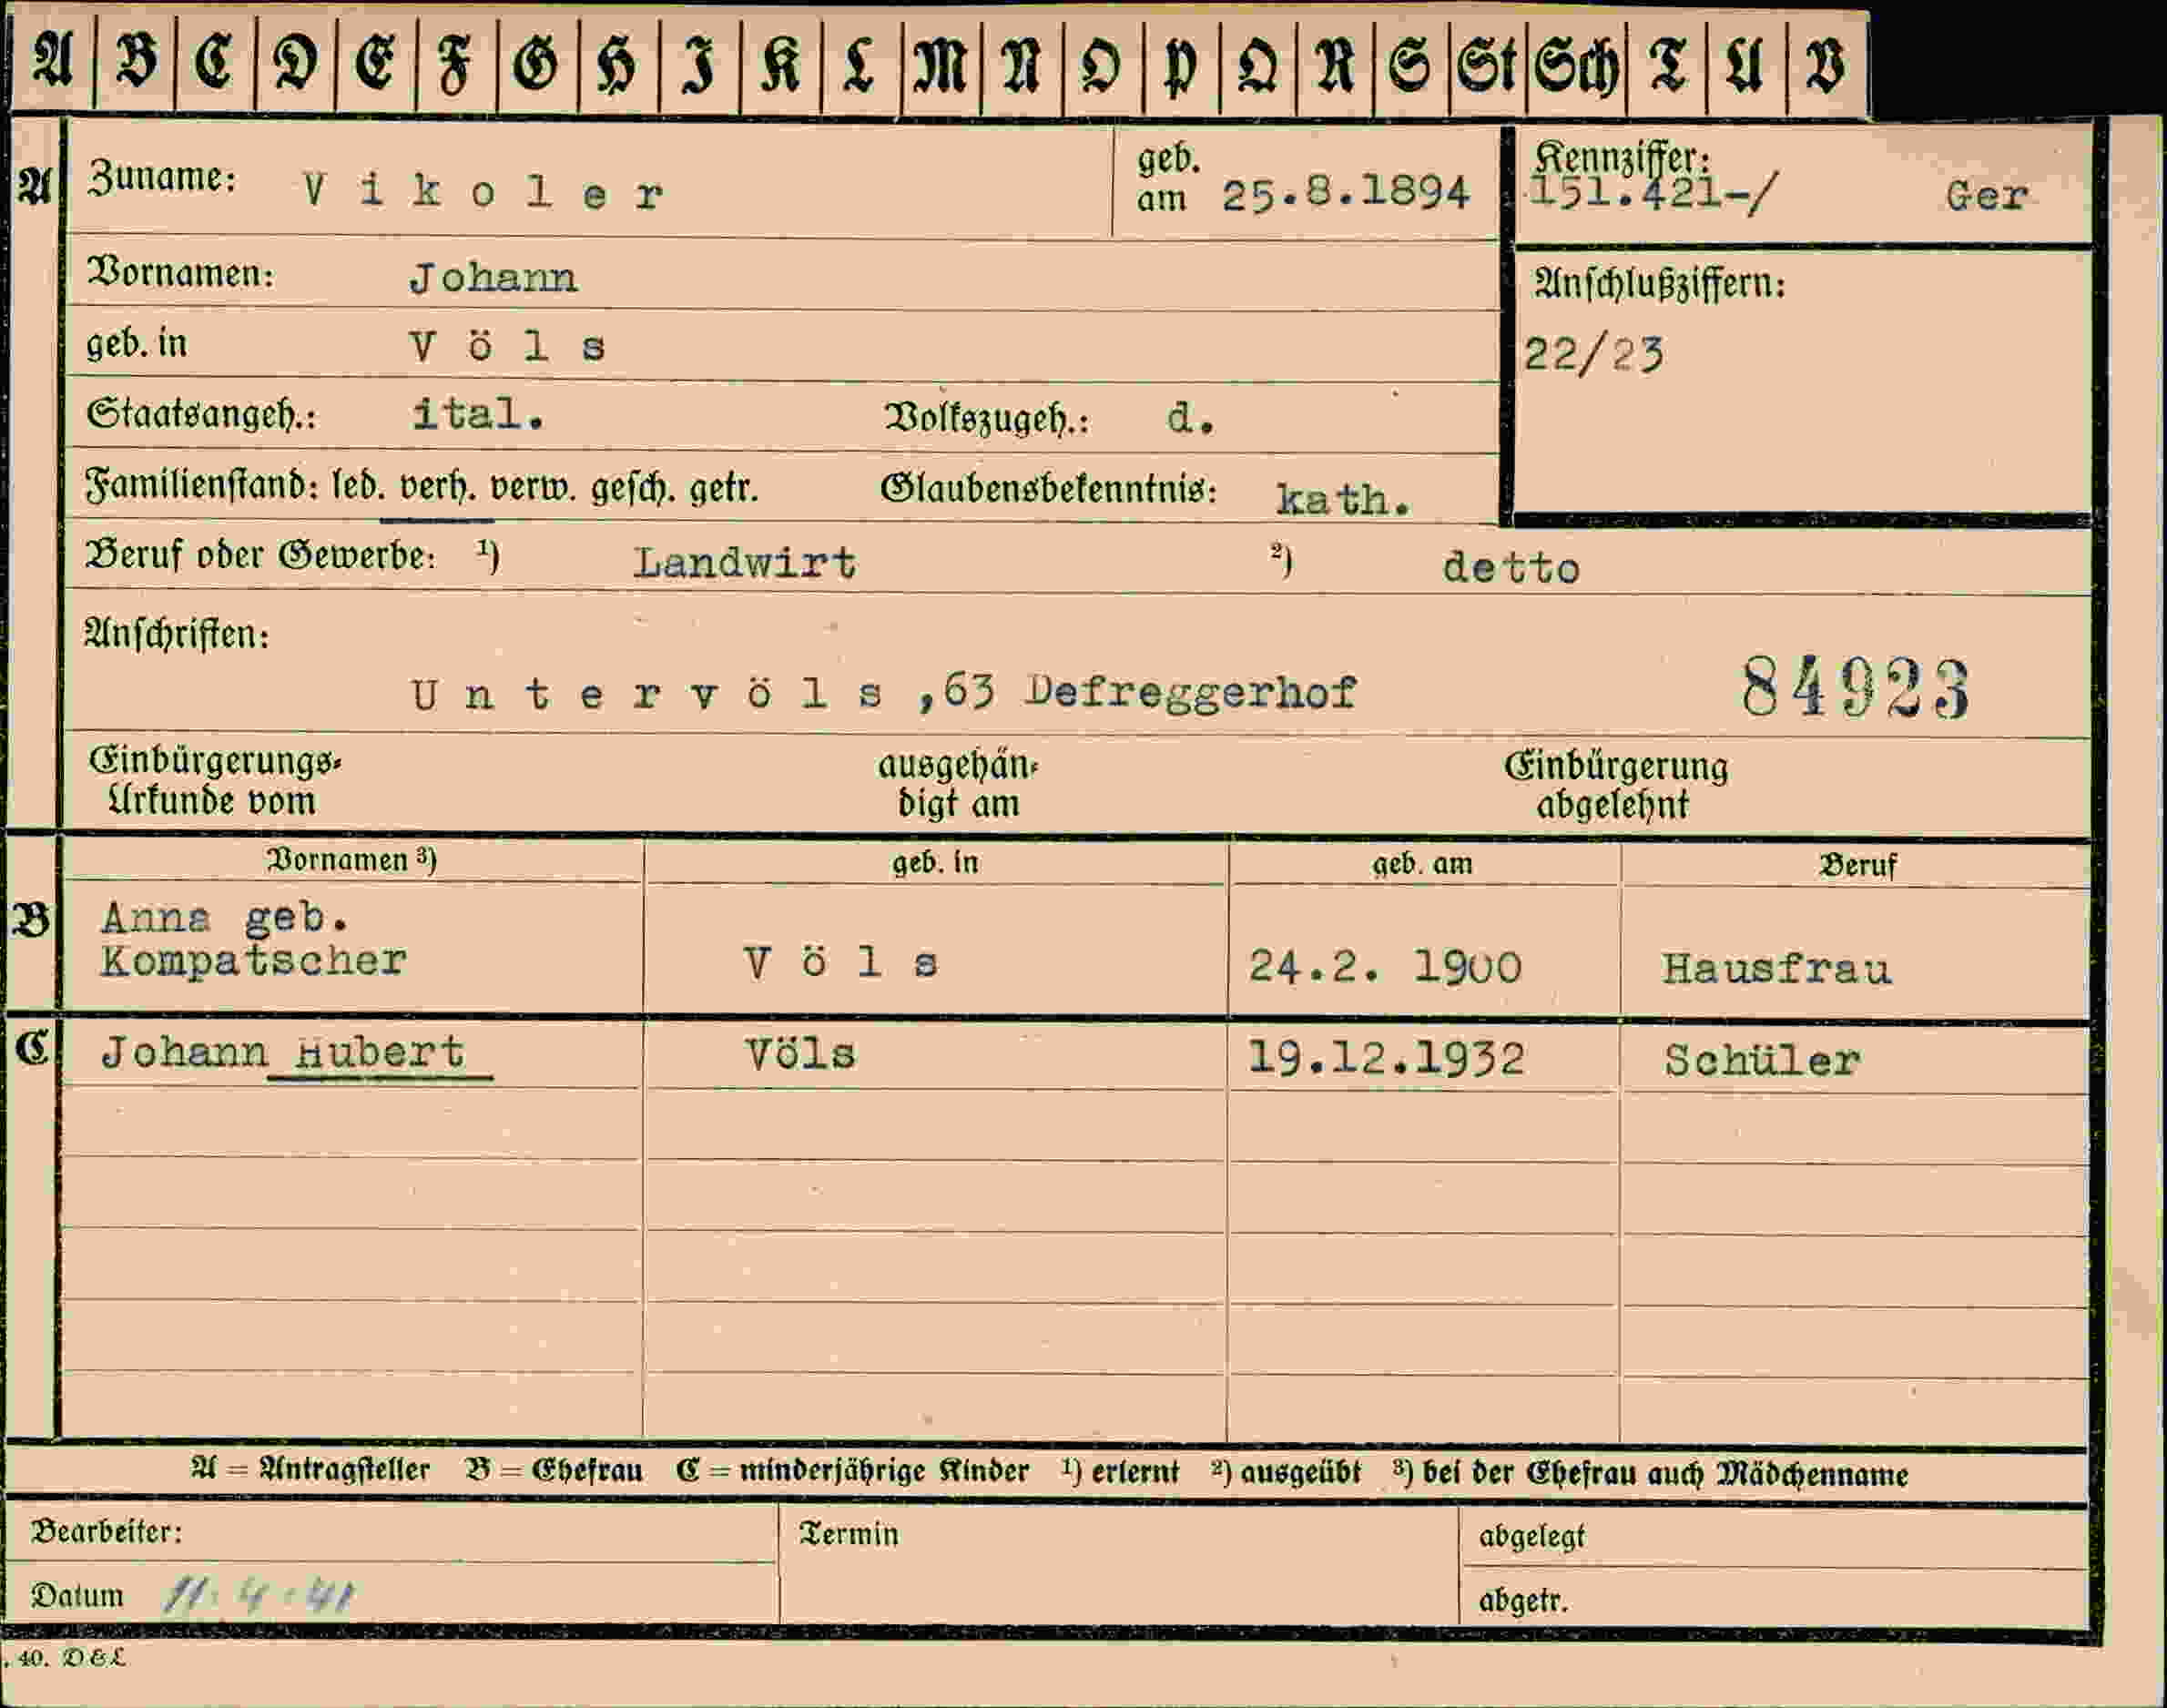 A B C D E F G H I K L M N O P Q R S St Sch T U V
A Zuname: Vikoler geb. am 25.8.1894 Kennziffer: 151.421-/ Ger
Vornamen: Johann Anschlußziffern:
geb. in Völs 22/23
Staatsangeh.: ital. Volkszugeh.: d.
Familienstand: led. verh. verw. gesch. getr. Glaubensbekenntnis: kath.
Beruf oder Gewerbe: 1) Landwirt 2) detto
Anschriften:
Untervöls,63 Defreggerhof 84923
Einbürgerungs- ausgehän- Einbürgerung
Urkunde vom digt am abgelehnt
Vornamen 3) geb. in geb. am Beruf
B Anna geb.
Kompatscher Völs 24.2. 1900 Hausfrau
C Johann Hubert Völs 19.12.1932 Schüler
A = Antragsteller B = Ehefrau C = minderjährige Kinder 1) erlernt 2) ausgeübt 3) bei der Ehefrau auch Mädchenname
Bearbeiter: Termin abgelegt
Datum 11.4.41 abgetr.
. 40. D&L